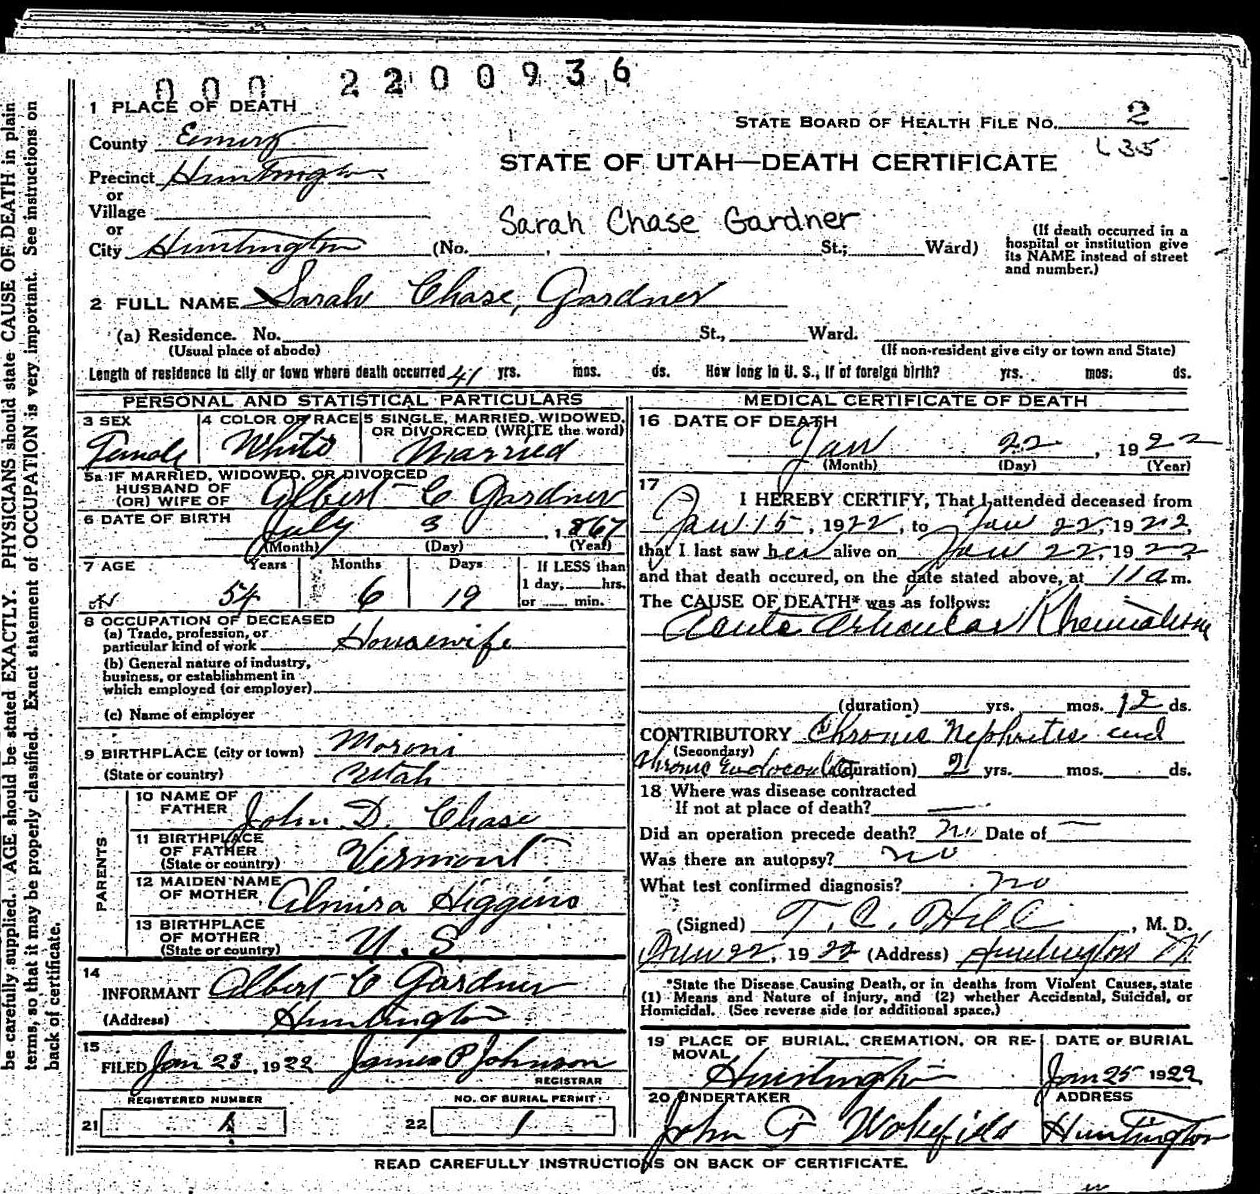 000 2200936
1 PLACE OF DEATH
STATE BOARD OF HEALTH FILE No. 2
L 35
County Emery
STATE OF UTAH—DEATH CERTIFICATE
Precinct Huntington
or
Village
or
Sarah Chase Gardner
City Huntington (No. , St.; Ward)
(If death occurred in a hospital or institution give its NAME instead of street and number.)
2 FULL NAME Sarah Chase Gardner
(a) Residence. No. St., Ward.
(Usual place of abode) (If non-resident give city or town and State)
Length of residence in city or town where death occurred 41 yrs. mos. ds. How long in U. S., if of foreign birth? yrs. mos. ds.
PERSONAL AND STATISTICAL PARTICULARS
3 SEX 4 COLOR OR RACE 5 SINGLE, MARRIED, WIDOWED,
OR DIVORCED (WRITE the word)
Female White Married
5a IF MARRIED, WIDOWED, OR DIVORCED
HUSBAND OF
(OR) WIFE OF Albert C Gardner
6 DATE OF BIRTH July 3, 1867
(Month) (Day) (Year)
7 AGE Years Months Days If LESS than
1 day, hrs.
54 6 19 or min.
8 OCCUPATION OF DECEASED
(a) Trade, profession, or
particular kind of work Housewife
(b) General nature of industry,
business, or establishment in
which employed (or employer)
(c) Name of employer
9 BIRTHPLACE (city or town) Moroni
(State or country) Utah
PARENTS
10 NAME OF
FATHER John D. Chase
11 BIRTHPLACE
OF FATHER
(State or country) Vermont
12 MAIDEN NAME
OF MOTHER Almira Higgins
13 BIRTHPLACE
OF MOTHER
(State or country) U. S.
14
INFORMANT Albert C Gardner
(Address) Huntington
15
FILED Jan 23, 1922 James P Johnson
REGISTRAR
REGISTERED NUMBER NO. OF BURIAL PERMIT
21 1 22 1
MEDICAL CERTIFICATE OF DEATH
16 DATE OF DEATH
Jan 22, 1922
(Month) (Day) (Year)
17
I HEREBY CERTIFY, That I attended deceased from
Jan 15, 1922, to Jan 22, 1922,
that I last saw her alive on Jan 22, 1922
and that death occured, on the date stated above, at 11 a m.
The CAUSE OF DEATH* was as follows:
Acute Articular Rheumatism
(duration) yrs. mos. 12 ds.
CONTRIBUTORY Chronic Nephritis and
(Secondary)
Chronic Endocarditis (duration) 2 yrs. mos. ds.
18 Where was disease contracted
If not at place of death?
Did an operation precede death? no Date of
Was there an autopsy? no
What test confirmed diagnosis? no
(Signed) T. C. Hill, M. D.
Jan 22, 1922 (Address) Huntington
*State the Disease Causing Death, or in deaths from Violent Causes, state
(1) Means and Nature of Injury, and (2) whether Accidental, Suicidal, or
Homicidal. (See reverse side for additional space.)
19 PLACE OF BURIAL, CREMATION, OR RE-
MOVAL
DATE OF BURIAL
Huntington Jan 25 1922
20 UNDERTAKER ADDRESS
John F Wakefield Huntington
READ CAREFULLY INSTRUCTIONS ON BACK OF CERTIFICATE.
be carefully supplied. AGE should be stated EXACTLY. PHYSICIANS should state CAUSE OF DEATH in plain
terms, so that it may be properly classified. Exact statement of OCCUPATION is very important. See instructions on
back of certificate.